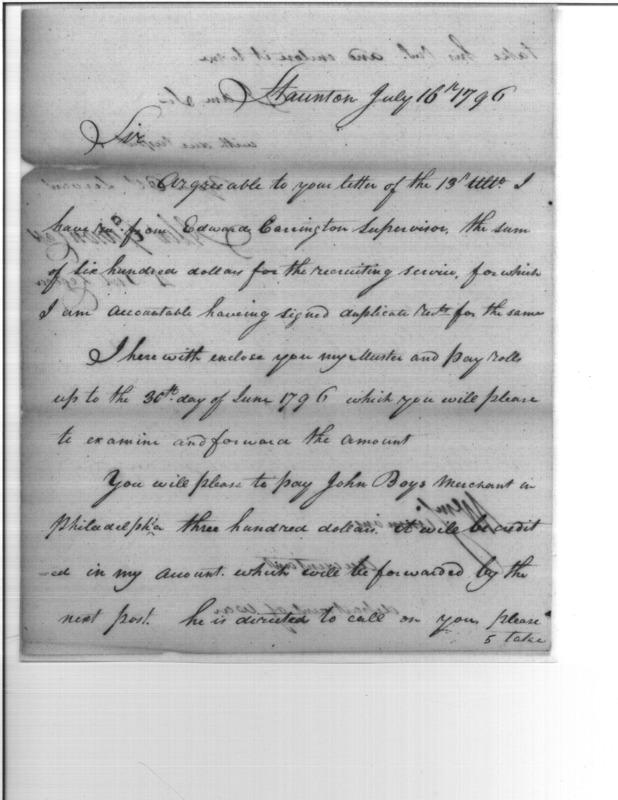 Staunton July 16th 1796
Sir
Agreeable to your letter of the 13th Ulto. I
have recd. from Edward Carrington Supervisor, the sum
of six hundred dollars for the recruiting service, for which
I am accountable having signed duplicate rects for the same
I here with enclose you my Muster and pay rolls
up to the 30th. day of June 1796 which you will please
to examine and forward the amount
You will please to pay John Boys Merchant in
Philadelpha three hundred dollars. it will be credit
-ed in my acount. which will be forwarded by the
next post. he is directed to call on you, please
to take